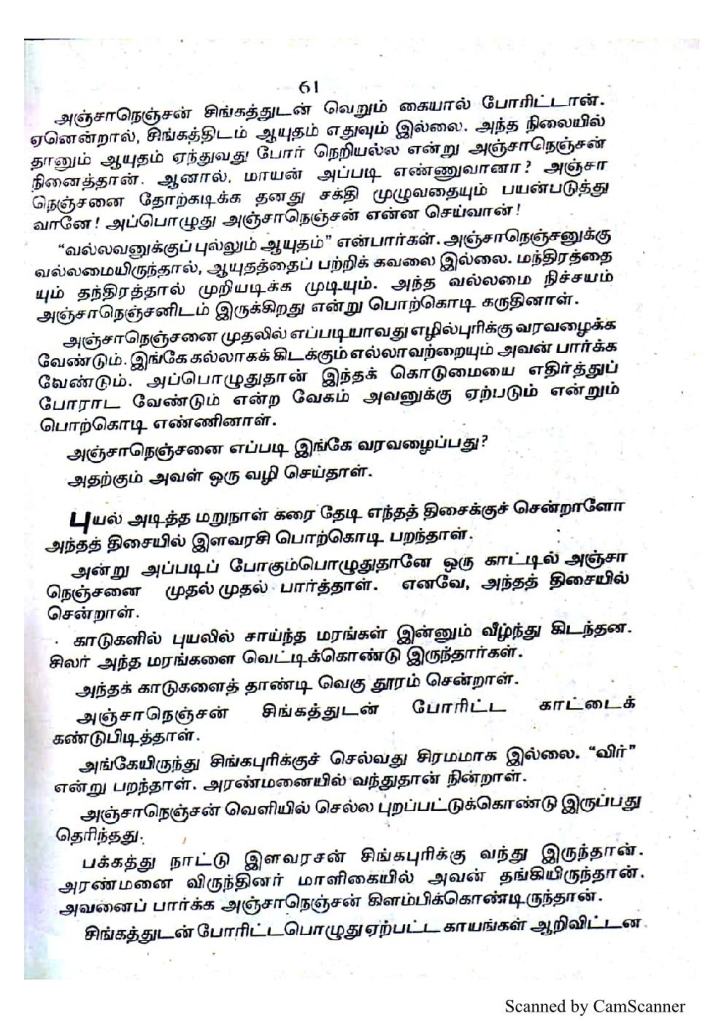 61
அஞ்சாநெஞ்சன் சிங்கத்துடன் வெறும் கையால் போரிட்டான்.
ஏனென்றால், சிங்கத்திடம் ஆயுதம் எதுவும் இல்லை. அந்த நிலையில்
தானும் ஆயுதம் ஏந்துவது போர் நெறியல்ல என்று அஞ்சாநெஞ்சன்
நினைத்தான். ஆனால், மாயன் அப்படி எண்ணுவானா? அஞ்சா
நெஞ்சனை தோற்கடிக்க தனது சக்தி முழுவதையும் பயன்படுத்து
வானே! அப்பொழுது அஞ்சாநெஞ்சன் என்ன செய்வான்!
“வல்லவனுக்குப் புல்லும் ஆயுதம்” என்பார்கள். அஞ்சாநெஞ்சனுக்கு
வல்லமையிருந்தால், ஆயுதத்தைப் பற்றிக் கவலை இல்லை. மந்திரத்தை
யும் தந்திரத்தால் முறியடிக்க முடியும். அந்த வல்லமை நிச்சயம்
அஞ்சாநெஞ்சனிடம் இருக்கிறது என்று பொற்கொடி கருதினாள்.
அஞ்சாநெஞ்சனை முதலில் எப்படியாவது எழில்புரிக்கு வரவழைக்க
வேண்டும். இங்கே கல்லாகக் கிடக்கும் எல்லாவற்றையும் அவன் பார்க்க
வேண்டும். அப்பொழுதுதான் இந்தக் கொடுமையை எதிர்த்துப்
போராட வேண்டும் என்ற வேகம் அவனுக்கு ஏற்படும் என்றும்
பொற்கொடி எண்ணினாள்.
அஞ்சாநெஞ்சனை எப்படி இங்கே வரவழைப்பது?
அதற்கும் அவள் ஒரு வழி செய்தாள்.
புயல் அடித்த மறுநாள் கரை தேடி எந்தத் திசைக்குச் சென்றாளோ
அந்தத் திசையில் இளவரசி பொற்கொடி பறந்தாள்.
அன்று அப்படிப் போகும்பொழுதுதானே ஒரு காட்டில் அஞ்சா
நெஞ்சனை முதல் முதல் பார்த்தாள். எனவே, அந்தத் திசையில்
சென்றாள்.
காடுகளில் புயலில் சாய்ந்த மரங்கள் இன்னும் வீழ்ந்து கிடந்தன.
சிலர் அந்த மரங்களை வெட்டிக்கொண்டு இருந்தார்கள்.
அந்தக் காடுகளைத் தாண்டி வெகு தூரம் சென்றாள்.
அஞ்சாநெஞ்சன் சிங்கத்துடன் போரிட்ட காட்டைக்
கண்டுபிடித்தாள்.
அங்கேயிருந்து சிங்கபுரிக்குச் செல்வது சிரமமாக இல்லை. “விர்”
என்று பறந்தாள். அரண்மனையில் வந்துதான் நின்றாள்.
அஞ்சாநெஞ்சன் வெளியில் செல்ல புறப்பட்டுக்கொண்டு இருப்பது
தெரிந்தது.
பக்கத்து நாட்டு இளவரசன் சிங்கபுரிக்கு வந்து இருந்தான்.
அரண்மனை விருந்தினர் மாளிகையில் அவன் தங்கியிருந்தான்.
அவனைப் பார்க்க அஞ்சாநெஞ்சன் கிளம்பிக்கொண்டிருந்தான்.
சிங்கத்துடன் போரிட்டபொழுது ஏற்பட்ட காயங்கள் ஆறிவிட்டன
Scanned by CamScanner